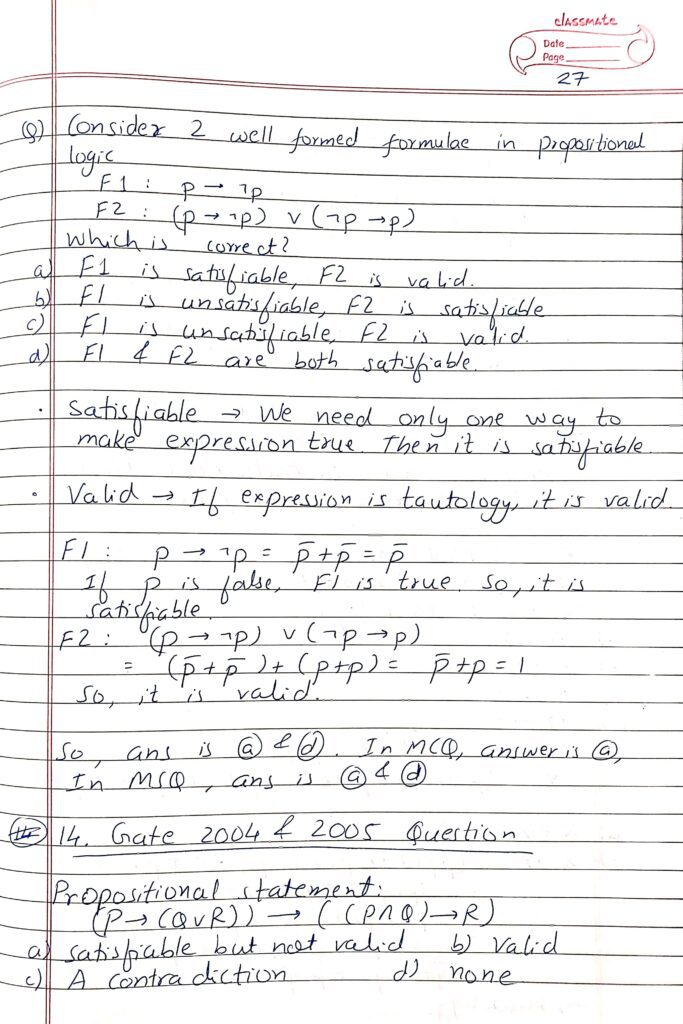 classmate
Date
Page
27
Q) Consider 2 well formed formulae in propositional
logic
F1 : p → ¬p
F2 : (p → ¬p) ∨ (¬p → p)
Which is correct?
a) F1 is satisfiable, F2 is valid.
b) F1 is unsatisfiable, F2 is satisfiable
c) F1 is unsatisfiable, F2 is valid.
d) F1 & F2 are both satisfiable.
· Satisfiable → We need only one way to
make expression true. Then it is satisfiable.
· Valid → If expression is tautology, it is valid.
F1 : p → ¬p = p̄ + p̄ = p̄
If p is false, F1 is true. So, it is
satisfiable.
F2 : (p → ¬p) ∨ (¬p → p)
= (p̄ + p̄) + (p+p) = p̄ + p = 1
So, it is valid.
So, ans is ⓐ & ⓓ. In MCQ, answer is ⓐ,
In MSQ, ans is ⓐ & ⓓ
14. Gate 2004 & 2005 Question
Propositional statement:
(P → (Q∨R)) → ((P∧Q) → R)
a) satisfiable but not valid b) Valid
c) A contradiction d) none